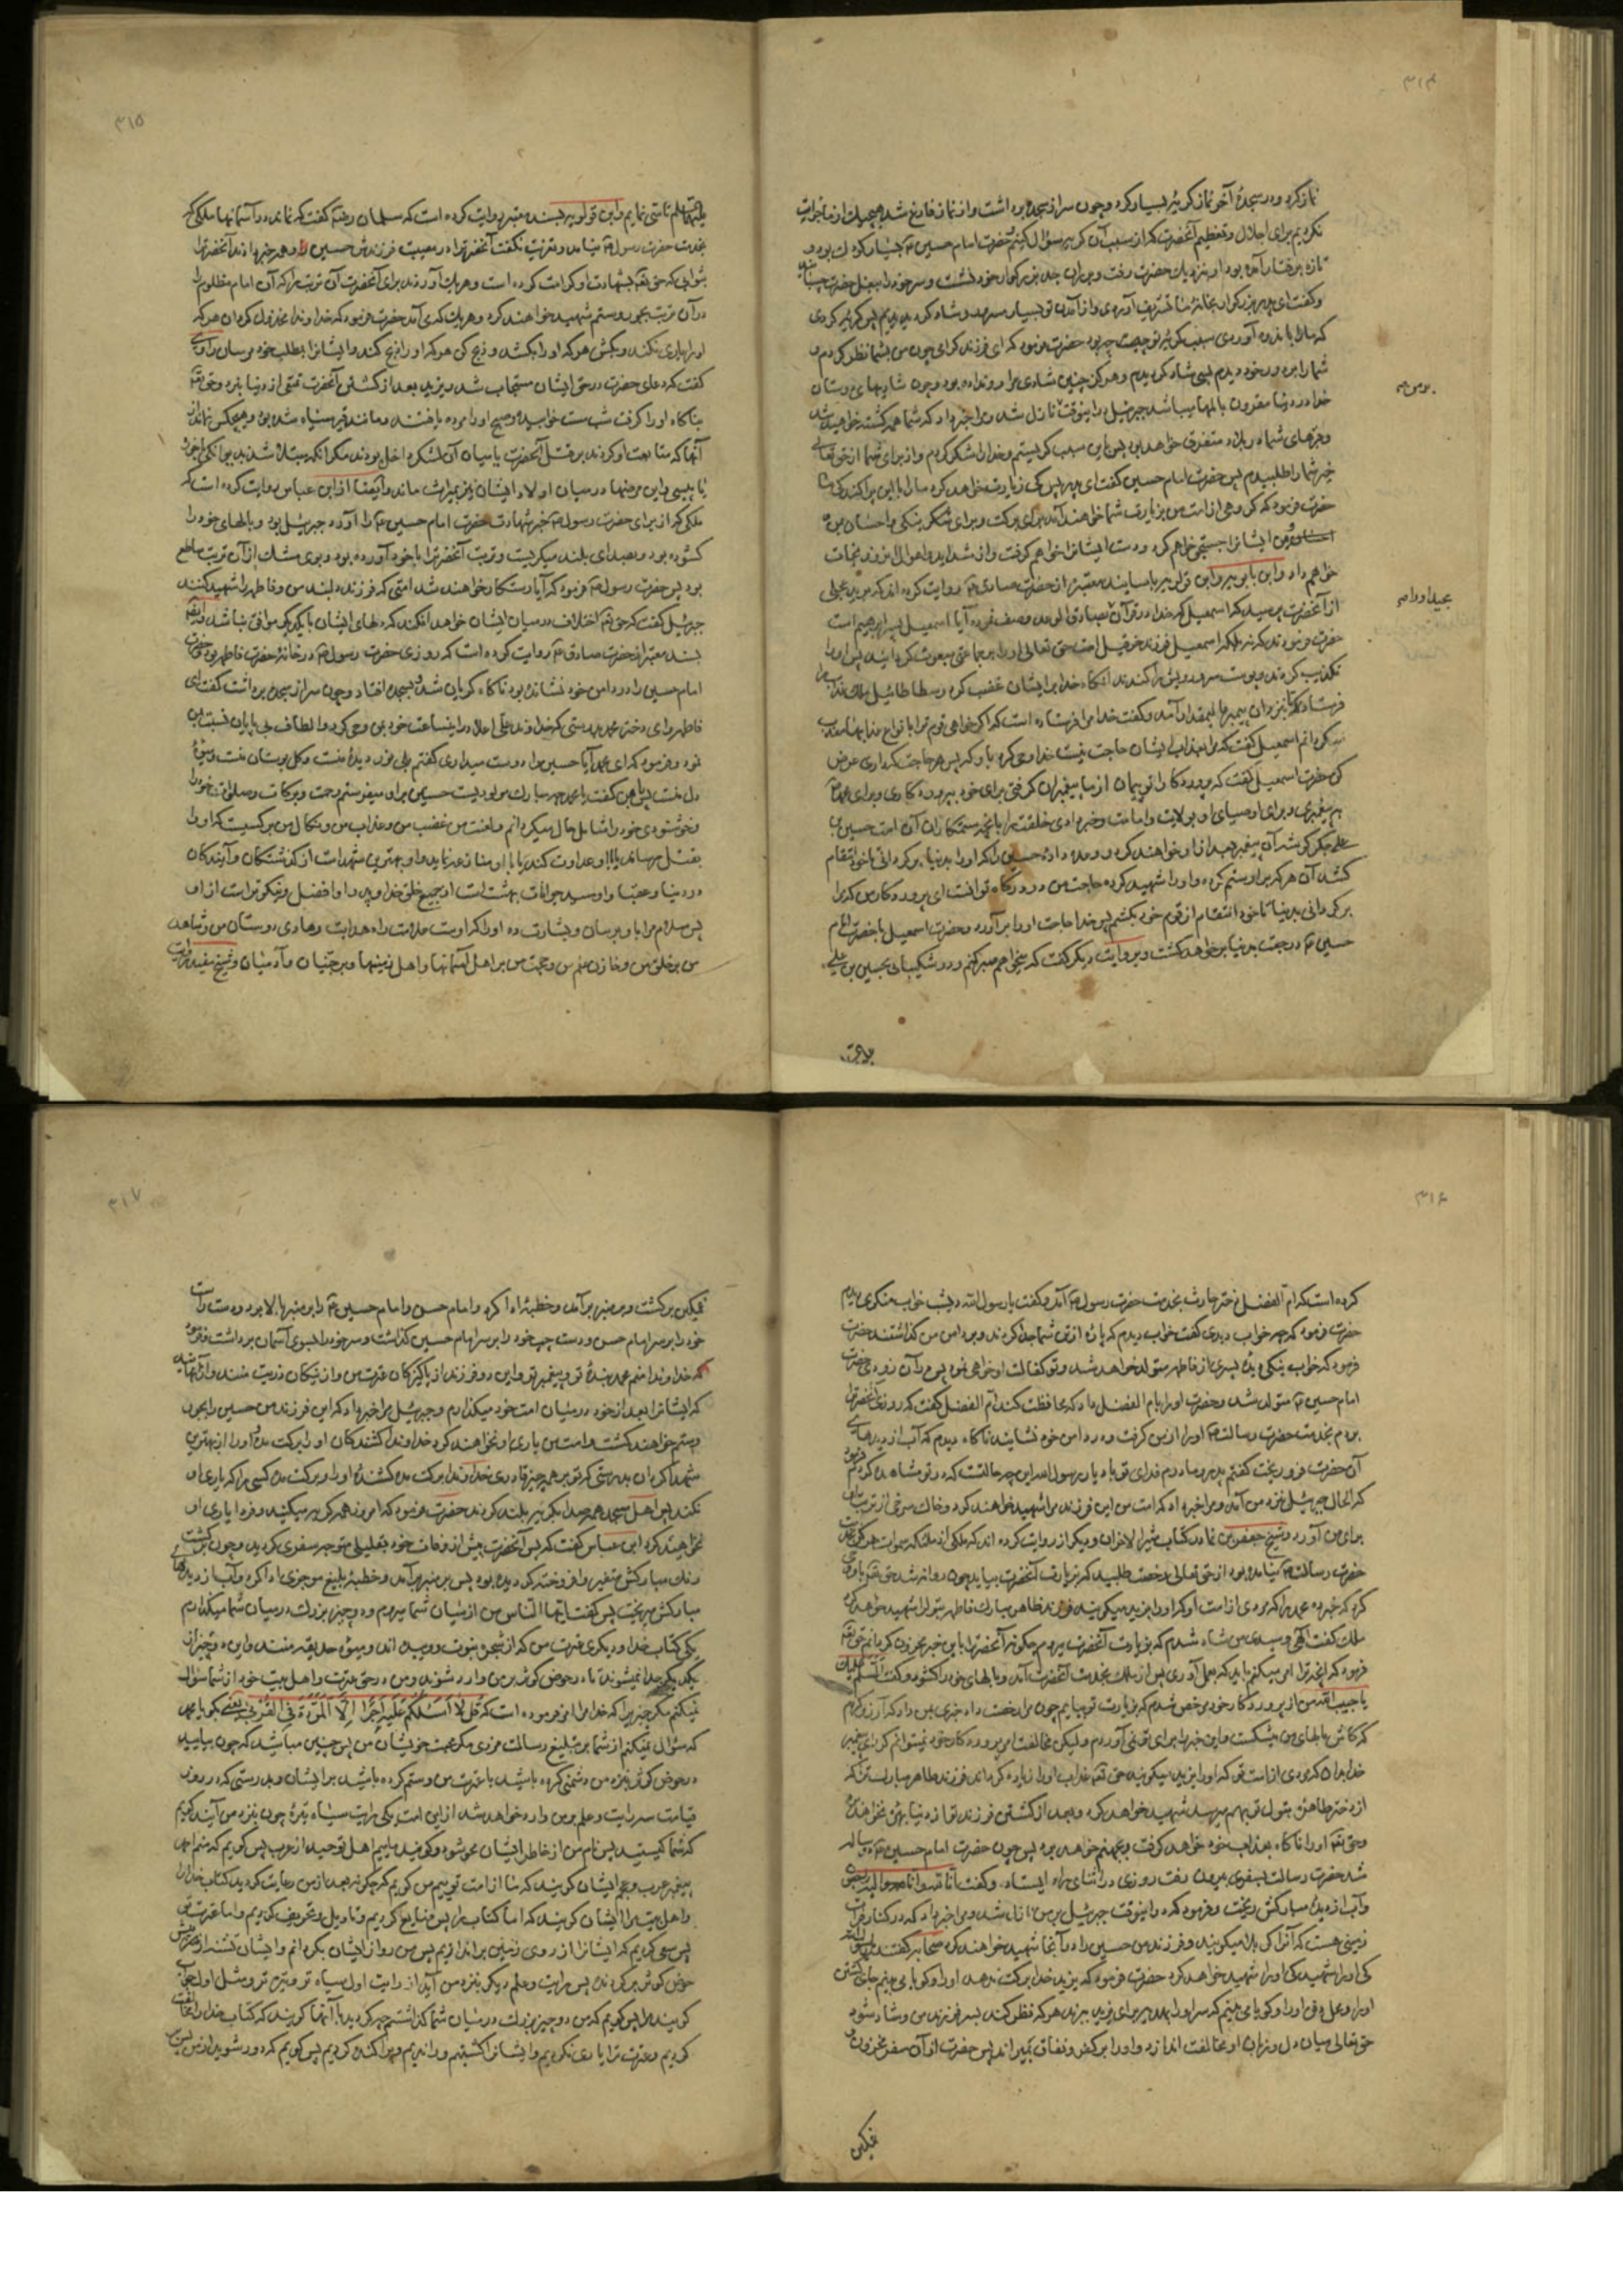 ۳۱۴
نماز کرد و در سجدهٔ آخر نماز گریهٔ بسیار کرد و چون سر از سجده برداشت و از نماز فارغ شد هیچیک از ما جرات
نکردیم برای اجلال و تعظیم آنحضرت که از سبب آن گریه سؤال کنیم حضرت امام حسین
تازه برفتار آمده بود او بنزدیک حضرت رفت و بر ران جد بزرگوار خود نشست و سر خود را ببغل حضرت چسبانید
و گفت ای پدر بزرگوار بخانهٔ ما تشریف آوردی و از آمدن تو بسیار مسرور و شاد گردیدیم پس گریه کردی
که ما را باندوه آوردی سبب گریهٔ تو چه بود حضرت فرمود که ای فرزند گرامی چون من بشما نظر کردم و
شما را بر دور خود دیدم بسی شاد گردیدم و هرگز چنین شادی مرا رو نداده بود و چون شادیهای دوستان
خدا در دنیا مقرون بالمها میباشد جبرئیل در اینوقت نازل شد و مرا خبر داد که شما همه کشته خواهید شد
و قبرهای شما در بلاد متفرق خواهد بود پس باین سبب گریستم و خدا را شکر کردم و از برای شما از حق تعالی
خیر شما را طلبیدم پس حضرت امام حسین گفت ای پدر پس کی زیارت خواهد کرد ما را با این پراکندگی
حضرت فرمود که گروهی از امت من بزیارت شما خواهند آمد برای برکت و برای
ایشانرا جستجو خواهم کرد و دست ایشانرا خواهم گرفت و از شداید و اهوال انروز نجات
خواهم داد و ابن بابویه و ابن قولویه باسانید معتبره از حضرت صادق روایت کرده اند که برید عجلی
از آنحضرت پرسید که اسمعیل که خدا در قرآن بصادق الوعد وصف نموده آیا اسمعیل پسر ابراهیم است
حضرت فرمود که نه بلکه اسمعیل فرزند حزقیل است حق تعالی او را بر جماعتی مبعوث گردانید پس او را
تکذیب کردند و پوست سر و رویش را کندند آنگاه خدا بر ایشان غضب کرد و سطاطائیل ملک عذاب را
فرستاد که بنزد آن پیغمبر عالیمقدار آمد و گفت خدا مرا فرستاده است که اگر خواهی قوم ترا بانواع عذابها معذب
گردانم اسمعیل گفت که مرا بعذاب ایشان حاجت نیست خدا وحی کرد باو که پس چه حاجت که داری عرض
کن حضرت اسمعیل گفت که پروردگارا تو پیمان از ما پیغمبران گرفتی برای خود بپروردگاری و برای محمد
به پیغمبری و برای اوصیای او بولایت و امامت و خبر دادی خلقت را بآنچه ستمکاران آن امت حسین بن
علی جگر گوشهٔ آن پیغمبر بعد از او خواهند کرد و وعده دادهٔ حسین را که او را بدنیا برگردانی تا خود انتقام
کشد از آن هر که بر او ستم کرده و او را شهید کرده حاجت من در درگاه تو آنست ای پروردگار من که مرا
برگردانی بدنیا تا خود انتقام از قوم خود بکشم پس خدا حاجت او را برآورد و حضرت اسمعیل با حضرت امام
حسین در رجعت بدنیا برخواهد گشت و بروایت دیگر گفت که میخواهم صبر کنم و در شکیبائی بحسین بن علی
۳۱۵
تاسی نمایم و ابن قولویه بسند معتبر روایت کرده است که سلمان رضه گفت که نماند در آسمانها ملکی که
بخدمت حضرت رسول نیامد و تعزیت نگفت آنحضرترا در مصیبت فرزندش حسین و همه خبر دادند آنحضرترا
بثوابی که حق تعالی بشهادت او کرامت کرده است و هر یک آوردند برای آنحضرت آن تربت را که آن امام مظلوم را
در آن تربت بجور و ستم شهید خواهند کرد و هر یک که می آمد حضرت میفرمود که خداوندا مخذول گردان هر که
او را یاری نکند و بکش هر که او را بکشد و ذبح کن هر که او را ذبح کند و ایشانرا بمطلب خود مرسان راوی
گفت که دعای حضرت در حق ایشان مستجاب شد و یزید بعد از کشتن آنحضرت تمتعی از دنیا نبرد و حق تعالی
بناگاه او را گرفت شب مست خوابید و صبح او را مرده یافتند و مانند قیر سیاه شده بود و هیچکس نماند از
آنها که متابعت او کردند بر قتل آنحضرت یا میان آن لشکر داخل بودند مگر آنکه مبتلا شدند بدیوانگی یا خوره
یا پیسی و این مرضها در میان اولاد ایشان نیز بمیراث ماند و ایضا از ابن عباس روایت کرده است که
ملکی که از برای حضرت رسول خبر شهادت حضرت امام حسین را آورد جبرئیل بود و بالهای خود را
گشوده بود و بصدای بلند میگریست و تربت آنحضرترا با خود آورده بود و بوی مشک از آن تربت ساطع
بود پس حضرت رسول فرمود که آیا رستگار خواهند شد امتی که فرزند دلبند من و فاطمه را شهید کنند
جبرئیل گفت که حق تعالی اختلاف در میان ایشان خواهد افکند که دلهای ایشان با یکدیگر موافق نباشد و ایضا
بسند معتبر از حضرت صادق روایت کرده است که روزی حضرت رسول در خانهٔ حضرت فاطمه بود و حضرت
امام حسین را در دامن خود نشانده بود ناگاه گریان شد و بسجده افتاد و چون سر از سجده برداشت گفت ای
فاطمه و ای دختر محمد بدرستی که خداوند علی اعلا در این ساعت
نمود و فرمود که ای محمد آیا حسین را دوست میداری گفتم بلی نور دیدهٔ منست و گل بوستان منست و میوهٔ
دل منست پس بمن گفت یا محمد چه مبارک مولودیست حسین بر او میفرستم رحمت و برکات و صلوات خود را
و خوشنودی خود را شامل حال او میگردانم و لعنت من و غضب من و عذاب من و نکال من بر کسیست که او را
بقتل رساند یا با او عداوت کند یا با او منازعه نماید و او بهترین شهدا است از گذشتگان و آیندگان
در دنیا و عقبا و او سید جوانان بهشت است از جمیع خلق خدا و پدر او افضل و نیکوتر است از او
پس سلام مرا باو برسان و بشارت ده او را که اوست علامت راه هدایت و هادی دوستان من و شاهد
من بر خلق من و خازن علم من و حجت من بر اهل آسمانها و اهل زمینها و بر جنیان و آدمیان و شیخ مفید روایت
۳۱۶
کرده است که ام الفضل دختر حارث بخدمت حضرت رسول آمد و گفت یا رسول الله دیشب خواب منکری دیدم
حضرت فرمود که چه خواب دیدی گفت خواب دیدم که پارهٔ از تن شما جدا کردند و بر دامن من گذاشتند حضرت
فرمود که خواب نیکی دیدهٔ پسری از فاطمه متولد خواهد شد و تو کفالت او خواهی نمود پس در آن زودی حضرت
امام حسین متولد شد و حضرت او را بام الفضل داد که محافظت کند ام الفضل گفت که روزی آنحضرترا
بردم بخدمت حضرت رسالت او را از من گرفت و در دامن خود نشانید ناگاه دیدم که آب از دیدهای
آن حضرت فرو ریخت گفتم پدر و مادرم فدای تو باد یا رسول الله این چه حالتست که در تو مشاهده کردم فرمود
که الحال جبرئیل نزد من آمد و مرا خبر داد که امت من این فرزند مرا شهید خواهند کرد و خاک سرخی از تربت او
برای من آورد و شیخ جعفر بن نما در کتاب مثیر الاحزان و دیگران روایت کرده اند که ملکی از ملائکه سموات هرگز بخدمت
حضرت رسالت نیامده بود از حق تعالی رخصت طلبید که بزیارت آنحضرت بیاید چون روانه شد حق تعالی باو وحی
کرد که خبر ده محمد را که مردی از امت او که او را یزید میگویند فرزند طاهر مبارک فاطمه بتول را شهید خواهد کرد
ملک گفت الهی و سیدی من شاد شدم که بزیارت آنحضرت میروم چگونه آنحضرترا باین خبر محزون گردانم حق تعالی
فرمود که آنچه ترا امر میکنم باید که بعمل آوری پس آن ملک بخدمت آنحضرت آمد و بالهای خود را گشود و گفت السلام علیک
یا حبیب الله من از پروردگار خود مرخص شدم که بزیارت تو بیایم چون مرا رخصت داد خبری بمن داد که آرزو کردم
که کاش بالهای من میشکست و این خبر را برای تو نمی آوردم ولیکن مخالفت امر پروردگار خود نمیتوانم کرد ای پیغمبر
خدا بدان که مردی از امت تو که او را یزید میگویند حق تعالی عذاب او را زیاده گرداند فرزند طاهر مبارک ترا که
از دختر طاهرهٔ بتول تو بهم میرسد شهید خواهد کرد و بعد از کشتن فرزند تو از دنیا بهره نخواهد برد
و حق تعالی او را ناگاه بعذاب خود خواهد گرفت و بجهنم خواهد برد پس چون حضرت امام حسین دو ساله
شد حضرت رسالت بسفری بیرون رفت روزی در اثنای راه ایستاد و گفت انا لله و انا الیه راجعون
و آب از دیدهٔ مبارکش ریخت و فرمود که در اینوقت جبرئیل بر من نازل شد و مرا خبر داد که در کنار فرات
زمینی هست که آنرا کربلا میگویند و فرزند من حسین را در آنجا شهید خواهند کرد صحابه گفتند یا رسول الله
کی او را شهید خواهد کرد حضرت فرمود که یزید خدا برکت ندهد او را و گویا می بینم جای کشتن
او را و محل دفن او را و گویا می بینم که سر او را بهدیه برای یزید میبرند هر که نظر کند بسر فرزند من و شاد شود
حق تعالی میان دل و زبان او مخالفت اندازد و او را بر کفر و نفاق بمیراند پس حضرت از آن سفر محزون و
غمگین
۳۱۷
غمگین برگشت و بر منبر برآمد و خطبهٔ ادا کرد و امام حسن و امام حسین را بر منبر بالا برد و دست راست
خود را بر سر امام حسن و دست چپ خود را بر سر امام حسین گذاشت و سر خود را بسوی آسمان برداشت و فرمود
که خداوندا منم محمد بندهٔ تو و پیغمبر تو و این دو فرزند از پاکیزگان عترت من و از نیکان ذریت منند
که ایشانرا بعد از خود در میان امت خود میگذارم و جبرئیل مرا خبر داد که این فرزند من حسین را بجور
و ستم خواهند کشت و امت من یاری او نخواهند کرد خداوندا کشندگان او را برکت مده و او را از بهترین
شهدا گردان بدرستی که تو بر همه چیز قادری خداوندا برکت مده کشندهٔ او را و برکت مده کسی را که یاری او
نکند پس اهل مسجد همه صدا بگریه بلند کردند حضرت فرمود که امروز همه گریه میکنید و فردا یاری او
نخواهید کرد ابن عباس گفت که پس آنحضرت پیش از وفات خود بقلیلی متوجه سفری گردید و چون برگشت
رنگ مبارکش متغیر و افروخته گردیده بود پس بر منبر برآمد و خطبهٔ بلیغ موجزی ادا کرد و آب از دیدهای
مبارکش میریخت پس گفت ایها الناس من از میان شما میروم و دو چیز بزرگ در میان شما میگذارم
یکی کتاب خدا و دیگری عترت من که از شجرهٔ نبوت روییده اند و میوهٔ حدیقهٔ منند و این دو چیز از
یکدیگر جدا نمیشوند تا در حوض کوثر بر من وارد شوند و من در حق عترت و اهل بیت خود از شما سؤال
نمیکنم مگر چیزیرا که خدا مرا امر فرموده است که قُل لا أَسئَلُكُم عَلَیهِ أَجرًا إِلَّا المَوَدَّةَ فِی القُربی یعنی بگو یا محمد
که سؤال نمیکنم از شما بر تبلیغ رسالت مزدی مگر محبت خویشان من پس چنین مباشید که چون بیایید
در حوض کوثر بنزد من دشمنی کرده باشید با عترت من و ستم کرده باشید بر ایشان و بدرستی که در روز
قیامت سه رایت و علم بر من وارد خواهد شد از این امت یکی رایت سیاه تیره چون بنزد من آیند گویم
که شما کیستید پس نام من از خاطر ایشان محو شود و گویند ماییم اهل توحید از عرب پس گویم که منم احمد
پیغمبر عرب و عجم ایشان گویند که ما از امت توییم من گویم که چگونه بعد از من رعایت کردید کتاب خدا را
و اهل بیت مرا ایشان گویند که اما کتاب را پس ضایع کردیم و تاویل و تحریف کردیم و اما عترت
پس سعی کردیم که ایشانرا از روی زمین براندازیم پس من رو از ایشان بگردانم و ایشان تشنه از
حوض کوثر برگردند پس رایت و علم دیگر بنزد من آید از رایت اول سیاه تر و تیره تر و مثل اول جواب
گویند پس گویم که من دو چیز بزرگ در میان شما گذاشتم چه کردید با آنها گویند که کتاب خدا را مخالفت
کردیم و عترت ترا یاری نکردیم و ایشانرا کشتیم و راندیم و پراکنده کردیم پس گویم که دور شوید از من پس